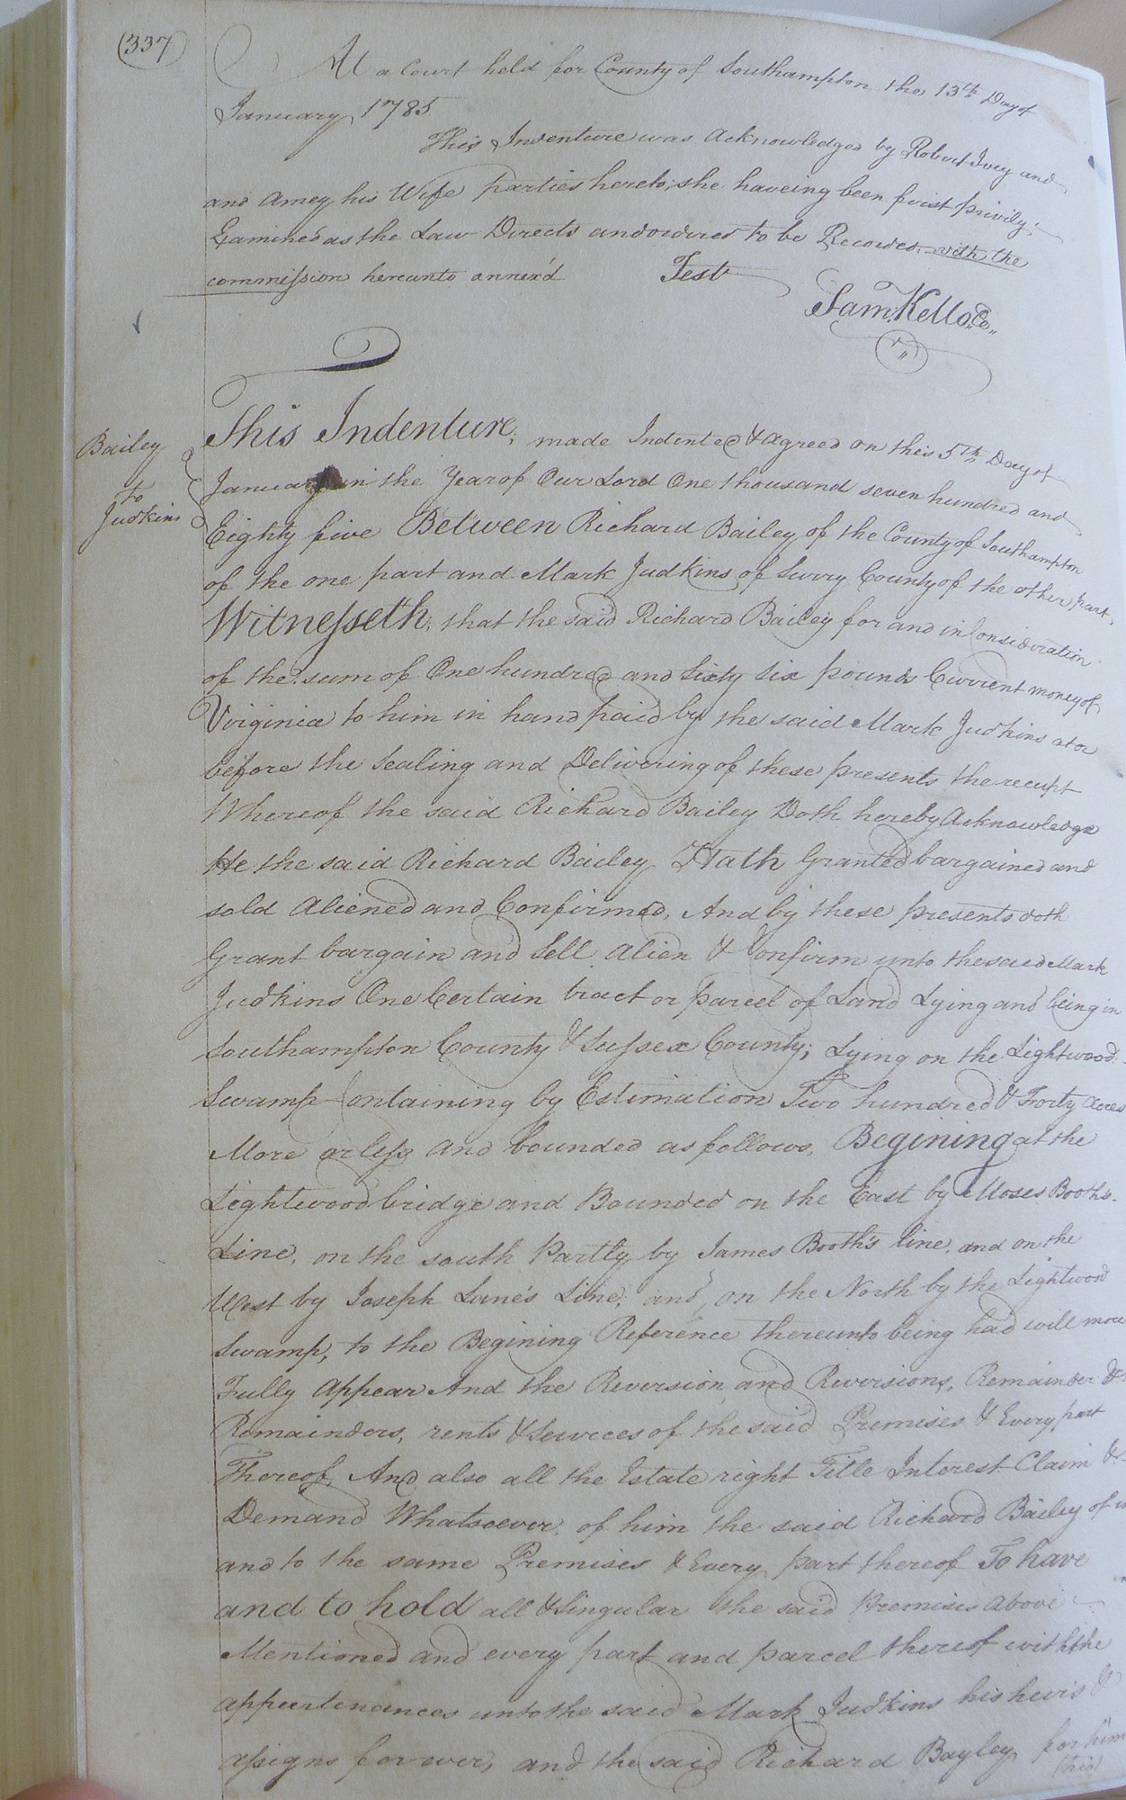 (337)
At a Court held for County of Southampton the 13th Day of
January 1785
This Indenture was Acknowledged by Robert Ivey and
and Amey his Wife parties hereto; she haveing been first privily
Examined as the Law Directs and ordered to be Recorded with the
commission hereunto annex'd Test
Sam. Kello Co.
Bailey
To
Judkins
This Indenture, made Indented & agreed on this 5th Day of
January in the Year of Our Lord One thousand seven hundred and
Eighty five Between Richard Bailey of the County of Southampton
of the one part and Mark Judkins of Surry County of the other part,
Witnesseth, that the said Richard Bailey for and in Consideration
of the sum of One hundred and Sixty Six pounds Current money of
Virginia to him in hand paid by the said Mark Judkins at or
before the Sealing and Delivering of these presents the recept
Whereof the said Richard Bailey Doth hereby Acknowledge
He the said Richard Bailey Hath Granted bargained and
sold Aliened and Confirmed, And by these presents doth
Grant bargain and Sell Alien & Confirm unto the said Mark
Judkins One Certain tract or parcel of Land Lying and being in
Southampton County & Sussex County; Lying on the Lightwood
Swamp Containing by Estimation Two hundred & Forty Acres
More or less and bounded as follows, Begining at the
Lightwood bridge and Bounded on the East by Moses Booths
Line, on the south Partly by James Booth's line, and on the
West by Joseph Lane's Line, and on the North by the Lightwood
Swamp, to the Begining Reference thereunto being had will more
Fully Appear And the Reversion and Reversions, Remainder &
Remainders, rents & Services of the said Premises & Every part
Thereof, And also all the Estate right Title Interest Claim &
Demand Whatsoever, of him the said Richard Bailey of in
and to the same Premises & Every part thereof To have
and to hold all & Singular the said Premises above
Mentioned and every part and parcel thereof with the
appurtenances unto the said Mark Judkins his heirs &
assigns for ever, and the said Richard Bayley for him
(his)